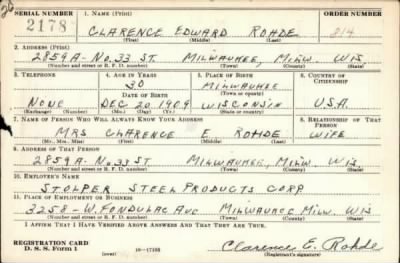 SERIAL NUMBER 1. NAME (Print) ORDER NUMBER
2178 CLARENCE EDWARD ROHDE 814
(First) (Middle) (Last)
2. ADDRESS (Print)
2859A-NO. 33 ST. MILWAUKEE, MILW. WIS.
(Number and street or R. F. D. number) (Town) (County) (State)
3. TELEPHONE 4. AGE IN YEARS 5. PLACE OF BIRTH 6. COUNTRY OF CITIZENSHIP
30 MILWAUKEE
DATE OF BIRTH (Town or county)
NONE DEC 20 1909 WISCONSIN U.S.A.
(Exchange) (Number) (Mo.) (Day) (Yr.) (State or country)
7. NAME OF PERSON WHO WILL ALWAYS KNOW YOUR ADDRESS 8. RELATIONSHIP OF THAT PERSON
MRS CLARENCE E. ROHDE WIFE
(Mr., Mrs., Miss) (First) (Middle) (Last)
9. ADDRESS OF THAT PERSON
2859A-NO. 33 ST MILWAUKEE, MILW. WIS.
(Number and street or R. F. D. number) (Town) (County) (State)
10. EMPLOYER'S NAME
STOLPER STEEL PRODUCTS CORP
11. PLACE OF EMPLOYMENT OR BUSINESS
3258-W. FONDULAC AVE MILWAUKEE MILW. WIS
(Number and street or R. F. D. number) (Town) (County) (State)
I AFFIRM THAT I HAVE VERIFIED ABOVE ANSWERS AND THAT THEY ARE TRUE.
REGISTRATION CARD
D. S. S. Form 1 (over) Clarence E. Rohde
(Registrant's signature)